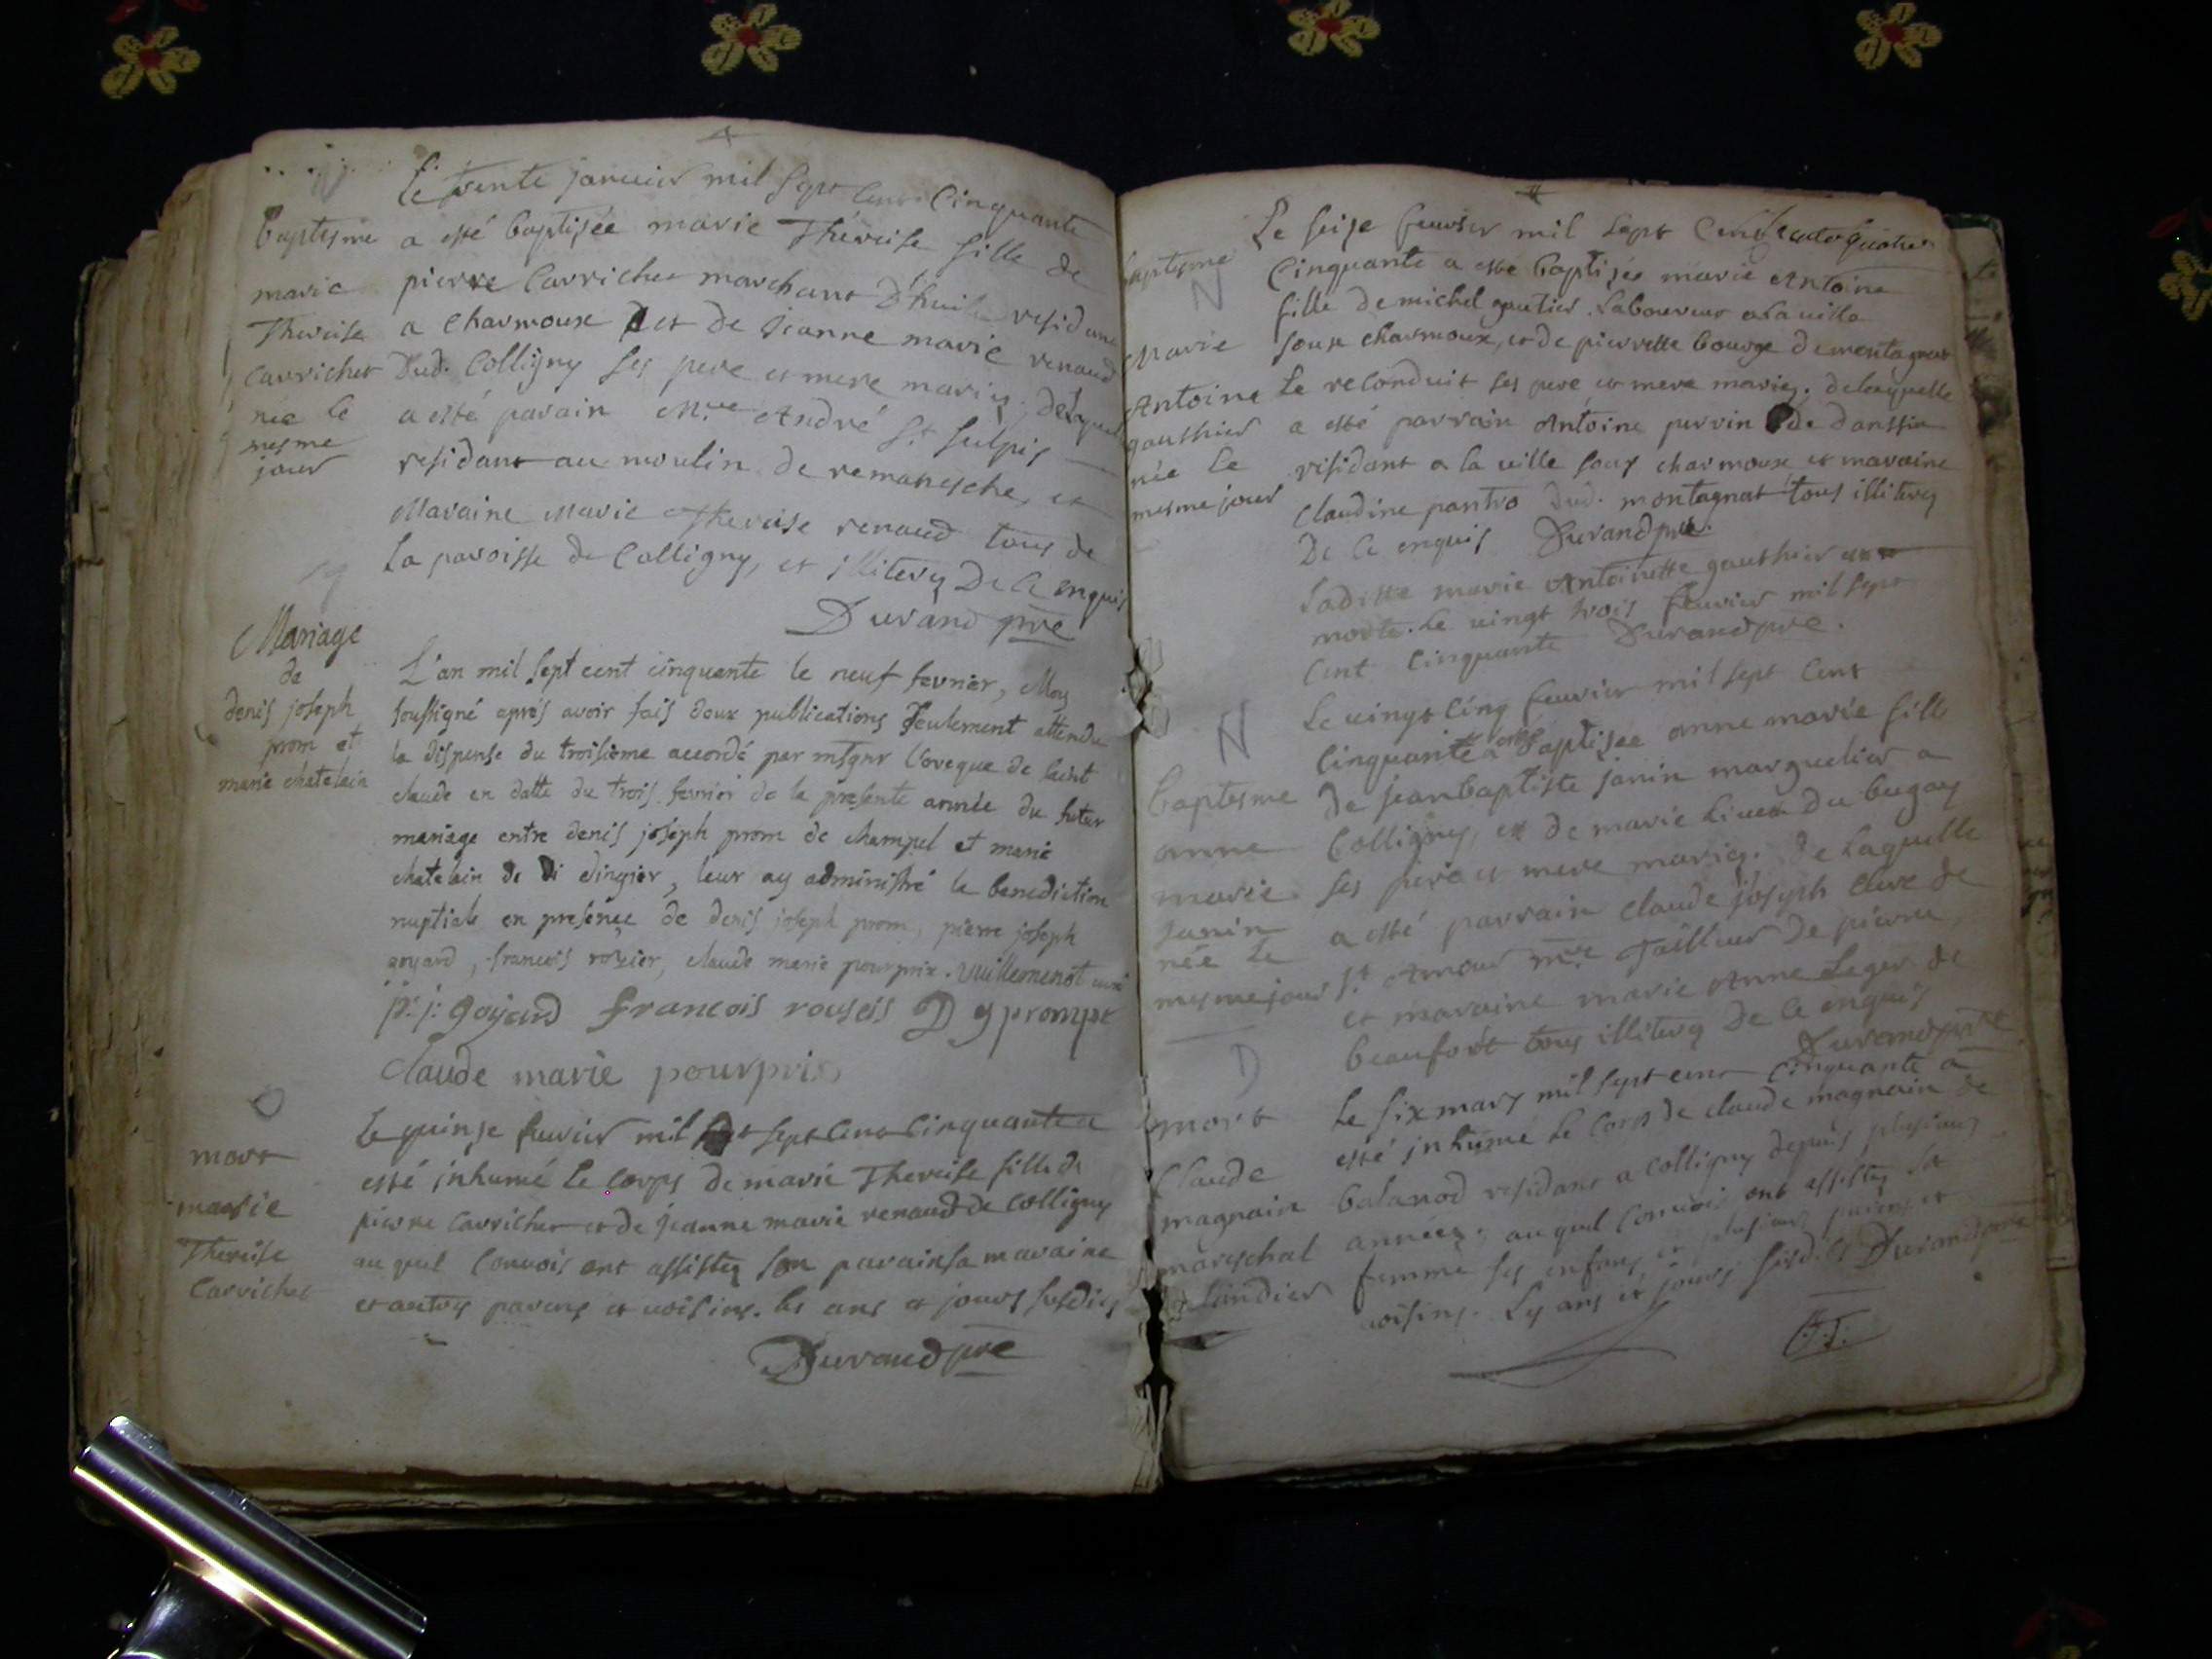 Le trente januier mil sept cent Cinquante
Baptesme a esté baptisée marie Thereise fille de
marie pierre Carrichet marchant D'huile residant
Thereise a Charmoux et de jeanne marie renaud
Carrichet Dud. Colligny ses pere et mere mariez, de Laquelle
née le a esté parain Mre André St Sulpis
mesme
jour residant au moulin de remanesche, et
Maraine Marie Thereise renaud tous de
La paroisse de Colligny, et illiterez De Ce enquis
Durand pre
Mariage
de
denis joseph
prom et
marie chatelain
L'an mil sept cent cinquante le neuf fevrier, Moy
soussigné aprés avoir fais deux publications seulement attendu
la dispense du troisieme accordé par msgnr l'eveque de saint
claude en datte du trois fevrier de la presente année du futur
mariage entre denis joseph prom de champel et marie
chatelain de di dingier, leur ay administré la benediction
nuptiale en presençe de denis joseph prom, pierre joseph
goyard, francois rozier, claude marie pourprix. Vuillemenot curé
p. j. goyard francois rouseis D J prompt
claude marie pourpris
Le quinse feurier mil sept Cent Cinquante a
mort esté inhumé Le Corps de marie Thereise fille de
marie pierre Carrichet et de jeanne marie renaud de Colligny
Thereise au quel Conuois ont assistez son parain sa maraine
Carrichet et autres parens et uoisins. les ans et jours susdits
Durand pre
Le seise feurier mil sept Cent
baptesme Cinquante a esté baptisée marie Antoine
N
fille de michel gautier Laboureur a La uille
Marie sous charmoux, et de pierrette bourge de montagnat
Antoine Le reconduit ses pere et mere mariez. de laquelle
gauthier a esté parrain Antoine perrin de
née Le residant a la uille sous charmoux et maraine
mesme jour Claudine Dud. montagnat tous illiterez
De Ce enquis Durand pre.
Laditte marie Antoinette gauthier est
morte. Le uingt trois feurier mil sept
Cent Cinquante Durand pre.
N Le uingt Cinq feurier mil sept Cent
Cinquante a esté baptisée anne marie fille
Baptesme de jean baptiste janin marguelier a
anne Colligny, et de marie du bugay
marie ses pere et mere mariez. de Laquelle
janin a esté parrain claude joseph de
née Le
mesme jour St Amour mre Tailleur De pierre,
et maraine marie Anne Leger de
beaufort tous illiterez De Ce enquis
Durand pre
D
mort Le six mars mil sept cent Cinquante a
esté inhumé Le Corps de claude magnain de
Claude
magnain balanod residant a Colligny depuis plusieurs
mareschal années, au quel Conuois ont assistez sa
femme ses enfans, et plusieurs parens et
uoisins. Les ans et jours susd. Durand pre